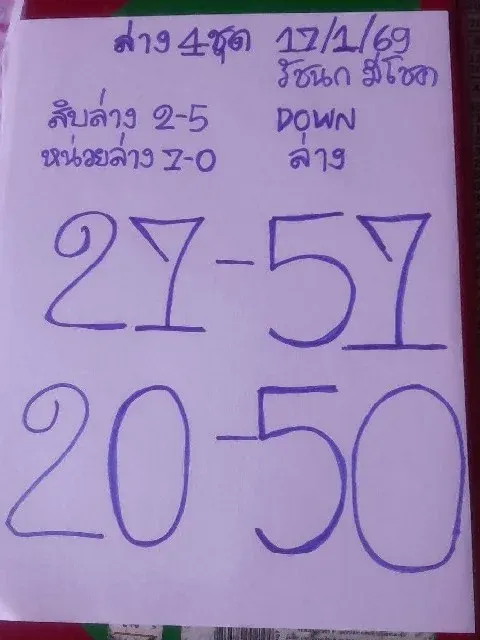 ล่าง 4 ชุด 17/1/69
รัชนก มีโชค
สิบล่าง 2-5 DOWN
หน่วยล่าง 7-0 ล่าง
27-57
20-50